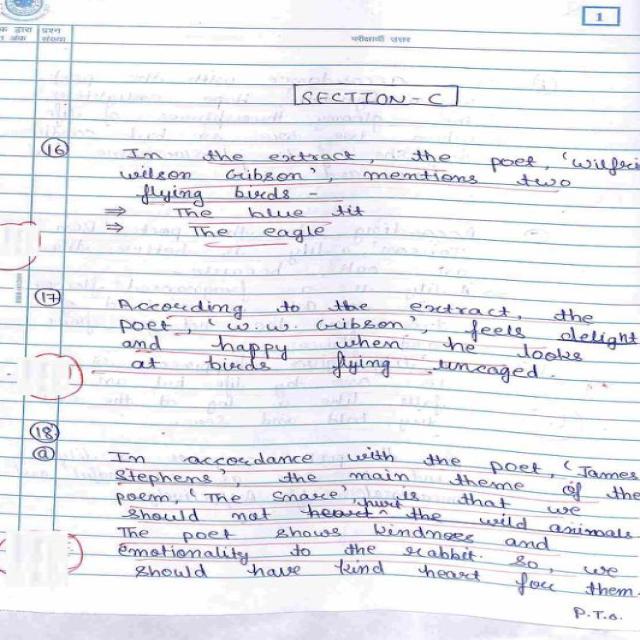 1
क द्वारा प्रश्न
अंक संख्या
परीक्षार्थी उत्तर
SECTION-C
16 In the extract, the poet, 'Wilfri
Wilson Gibson', mentions two
flying birds -
⇒ The blue tit
⇒ The eagle
17 According to the extract, the
poet, 'W.W. Gibson', feels delight
and happy when he looks
at birds flying uncaged.
18
a In accordance with the poet, 'James
Stephens', the main theme of the
poem 'The Snare' is that we
should not heart hurt the wild animals
The poet shows kindness and
emotionality to the rabbit. So, we
should have kind heart for them.
P.T.O.